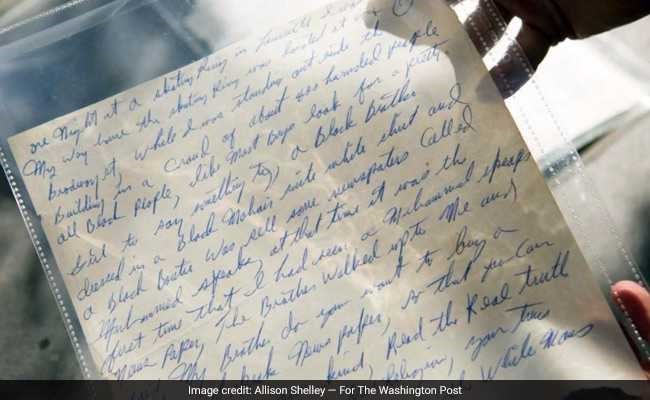 one Night at a skating Ring in Louisville I was
My way home the skating Ring was located at
broadway st, while I was standing out side the
Building in a crowd of about 400 hundred people
all Black People, like Most Boys look for a pretty
Girl to say something to, a Black Brother
dressed in a Black Mohair suite white shirt and
a Black Bowtie was sell some newspapers Called
Muhammed speaks, at that time it was the
first time that I had seen a Muhammad speaks
News Paper, The Brother Walked upto Me and
My Brother do you want to buy a
speaks News paper, so that you can
kind, Read the Real truth
Religion, your true
White Mans
Image credit: Allison Shelley — For The Washington Post